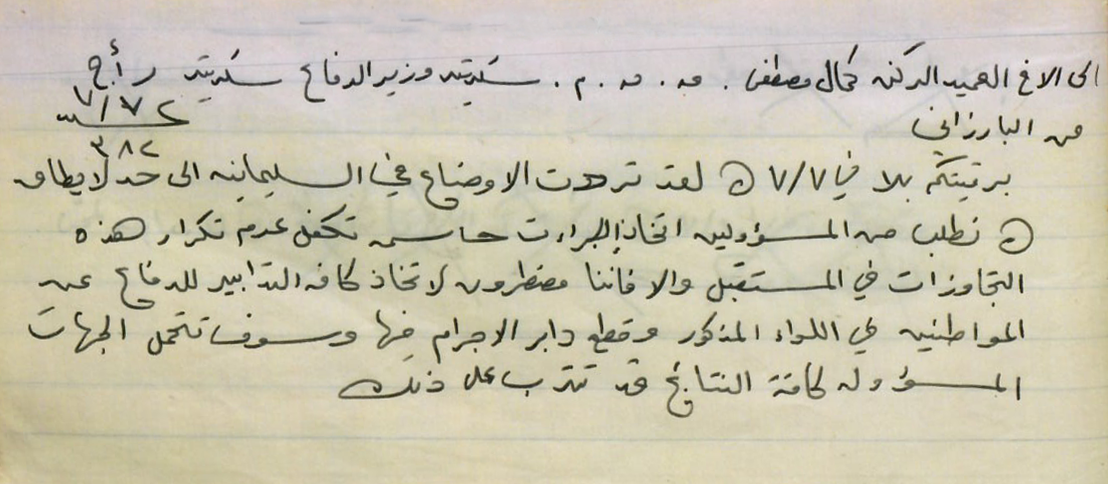 الى الاخ العميد الركن كمال مصطفى . ق . ق . م . سكرتير وزير الدفاع سكرتير ر أ ج
٧/٧
من البارزاني
٣٨٢
برقيتكم بلا في ٧/٧ ( ) لقد تردت الاوضاع في السليمانيه الى حد لا يطاق
( ) نطلب من المسؤولين اتخاذ اجراءت حاسمه تكفل عدم تكرار هذه
التجاوزات في المستقبل والا فاننا مضطرون لاتخاذ كافه التدابير للدفاع عن
المواطنين في اللواء المذكور وقطع دابر الاجرام فيها وسوف تتحمل الجهات
المسؤوله كافة النتائج قد تترب على ذلك